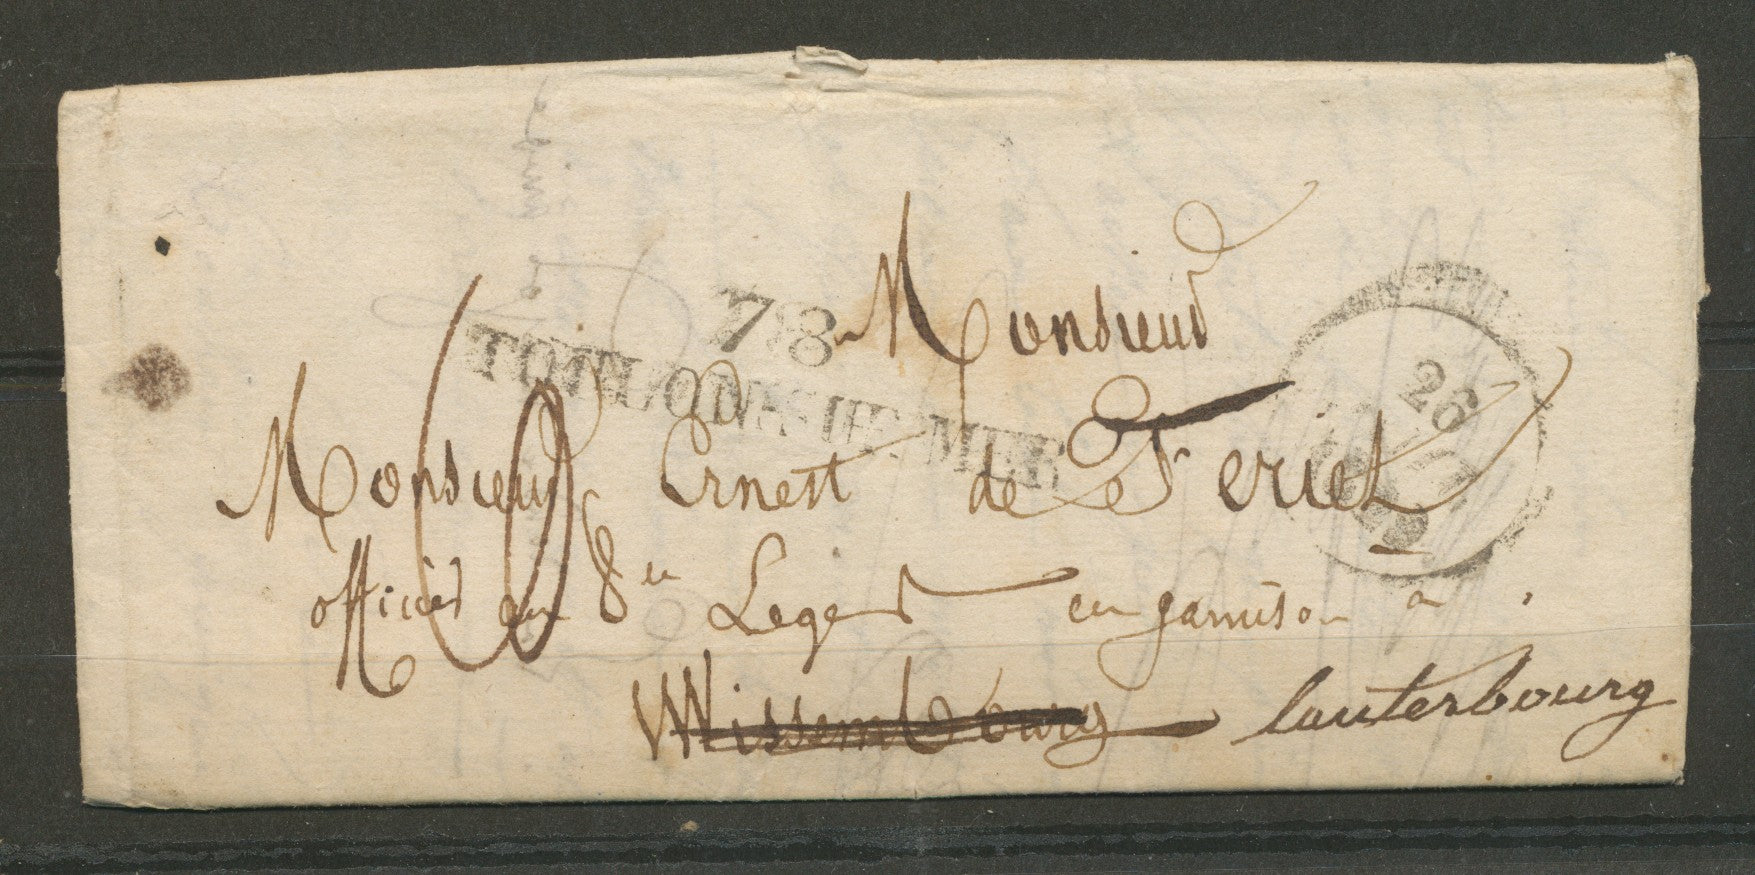 Monsieur
78
TOULON-SUR-MER
26
Monsieur Ernest de Feriet
officier au 8e Leger en garnison a
Wissembourg lauterbourg